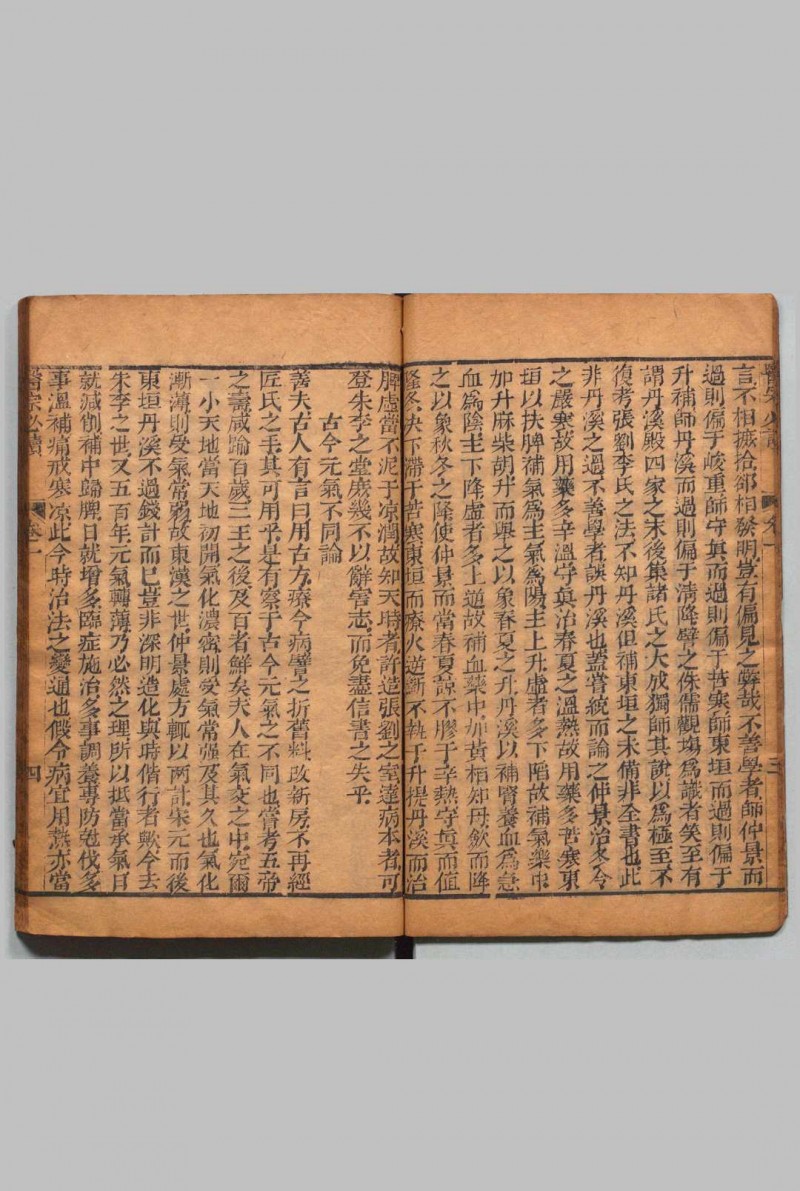 言不相摭拾卻相發明豈有偏見之弊哉不善學者師仲景而
過則偏于峻重師守眞而過則偏于苦寒師東垣而過則偏于
升補師丹溪而過則偏于淸降譬之侏儒觀塲爲識者笑至有
謂丹溪殿四家之末後集諸氏之大成獨師其說以爲極至不
復考張劉李氏之法不知丹溪但補東垣之未備非全書也此
非丹溪之過不善學者誤丹溪也蓋嘗統而論之仲景治冬令
之嚴寒故用藥多辛溫守眞治春夏之溫熱故用藥多苦寒東
垣以扶脾補氣爲主氣爲陽主上升虛者多下陷故補氣藥中
加升麻柴胡升而舉之以象春夏之升丹溪以補腎養血爲急
血爲陰主下降虛者多上逆故補血藥中加黃栢知母歛而降
之以象秋冬之降使仲景而當春夏諒不膠于辛熱守眞而值
隆冬決不滯于苦寒東垣而療火逆斷不執于升提丹溪而治
脾虛當不泥于凉潤故知天時者許造張劉之室達病本者可
登朱李之堂庻幾不以辭害志而免盡信書之失乎
古今元氣不同論
善夫古人有言曰用古方療今病譬之折舊料改新房不再經
匠氏之手其可用乎是有察于古今元氣之不同也嘗考五帝
之壽咸踰百歲三王之後及百者鮮矣夫人在氣交之中宛爾
一小天地當天地初開氣化濃密則受氣常强及其久也氣化
漸薄則受氣常弱故東漢之世仲景處方輒以兩計宋元而後
東垣丹溪不過錢計而已豈非深明造化與時偕行者歟今去
朱李之世又五百年元氣轉薄乃必然之理所以抵當承氣日
就減削補中歸脾日就增多臨症施治多事調養專防尅伐多
事溫補痛戒寒凉此今時治法之變通也假令病宜用熱亦當
醫宗必讀
卷一
四